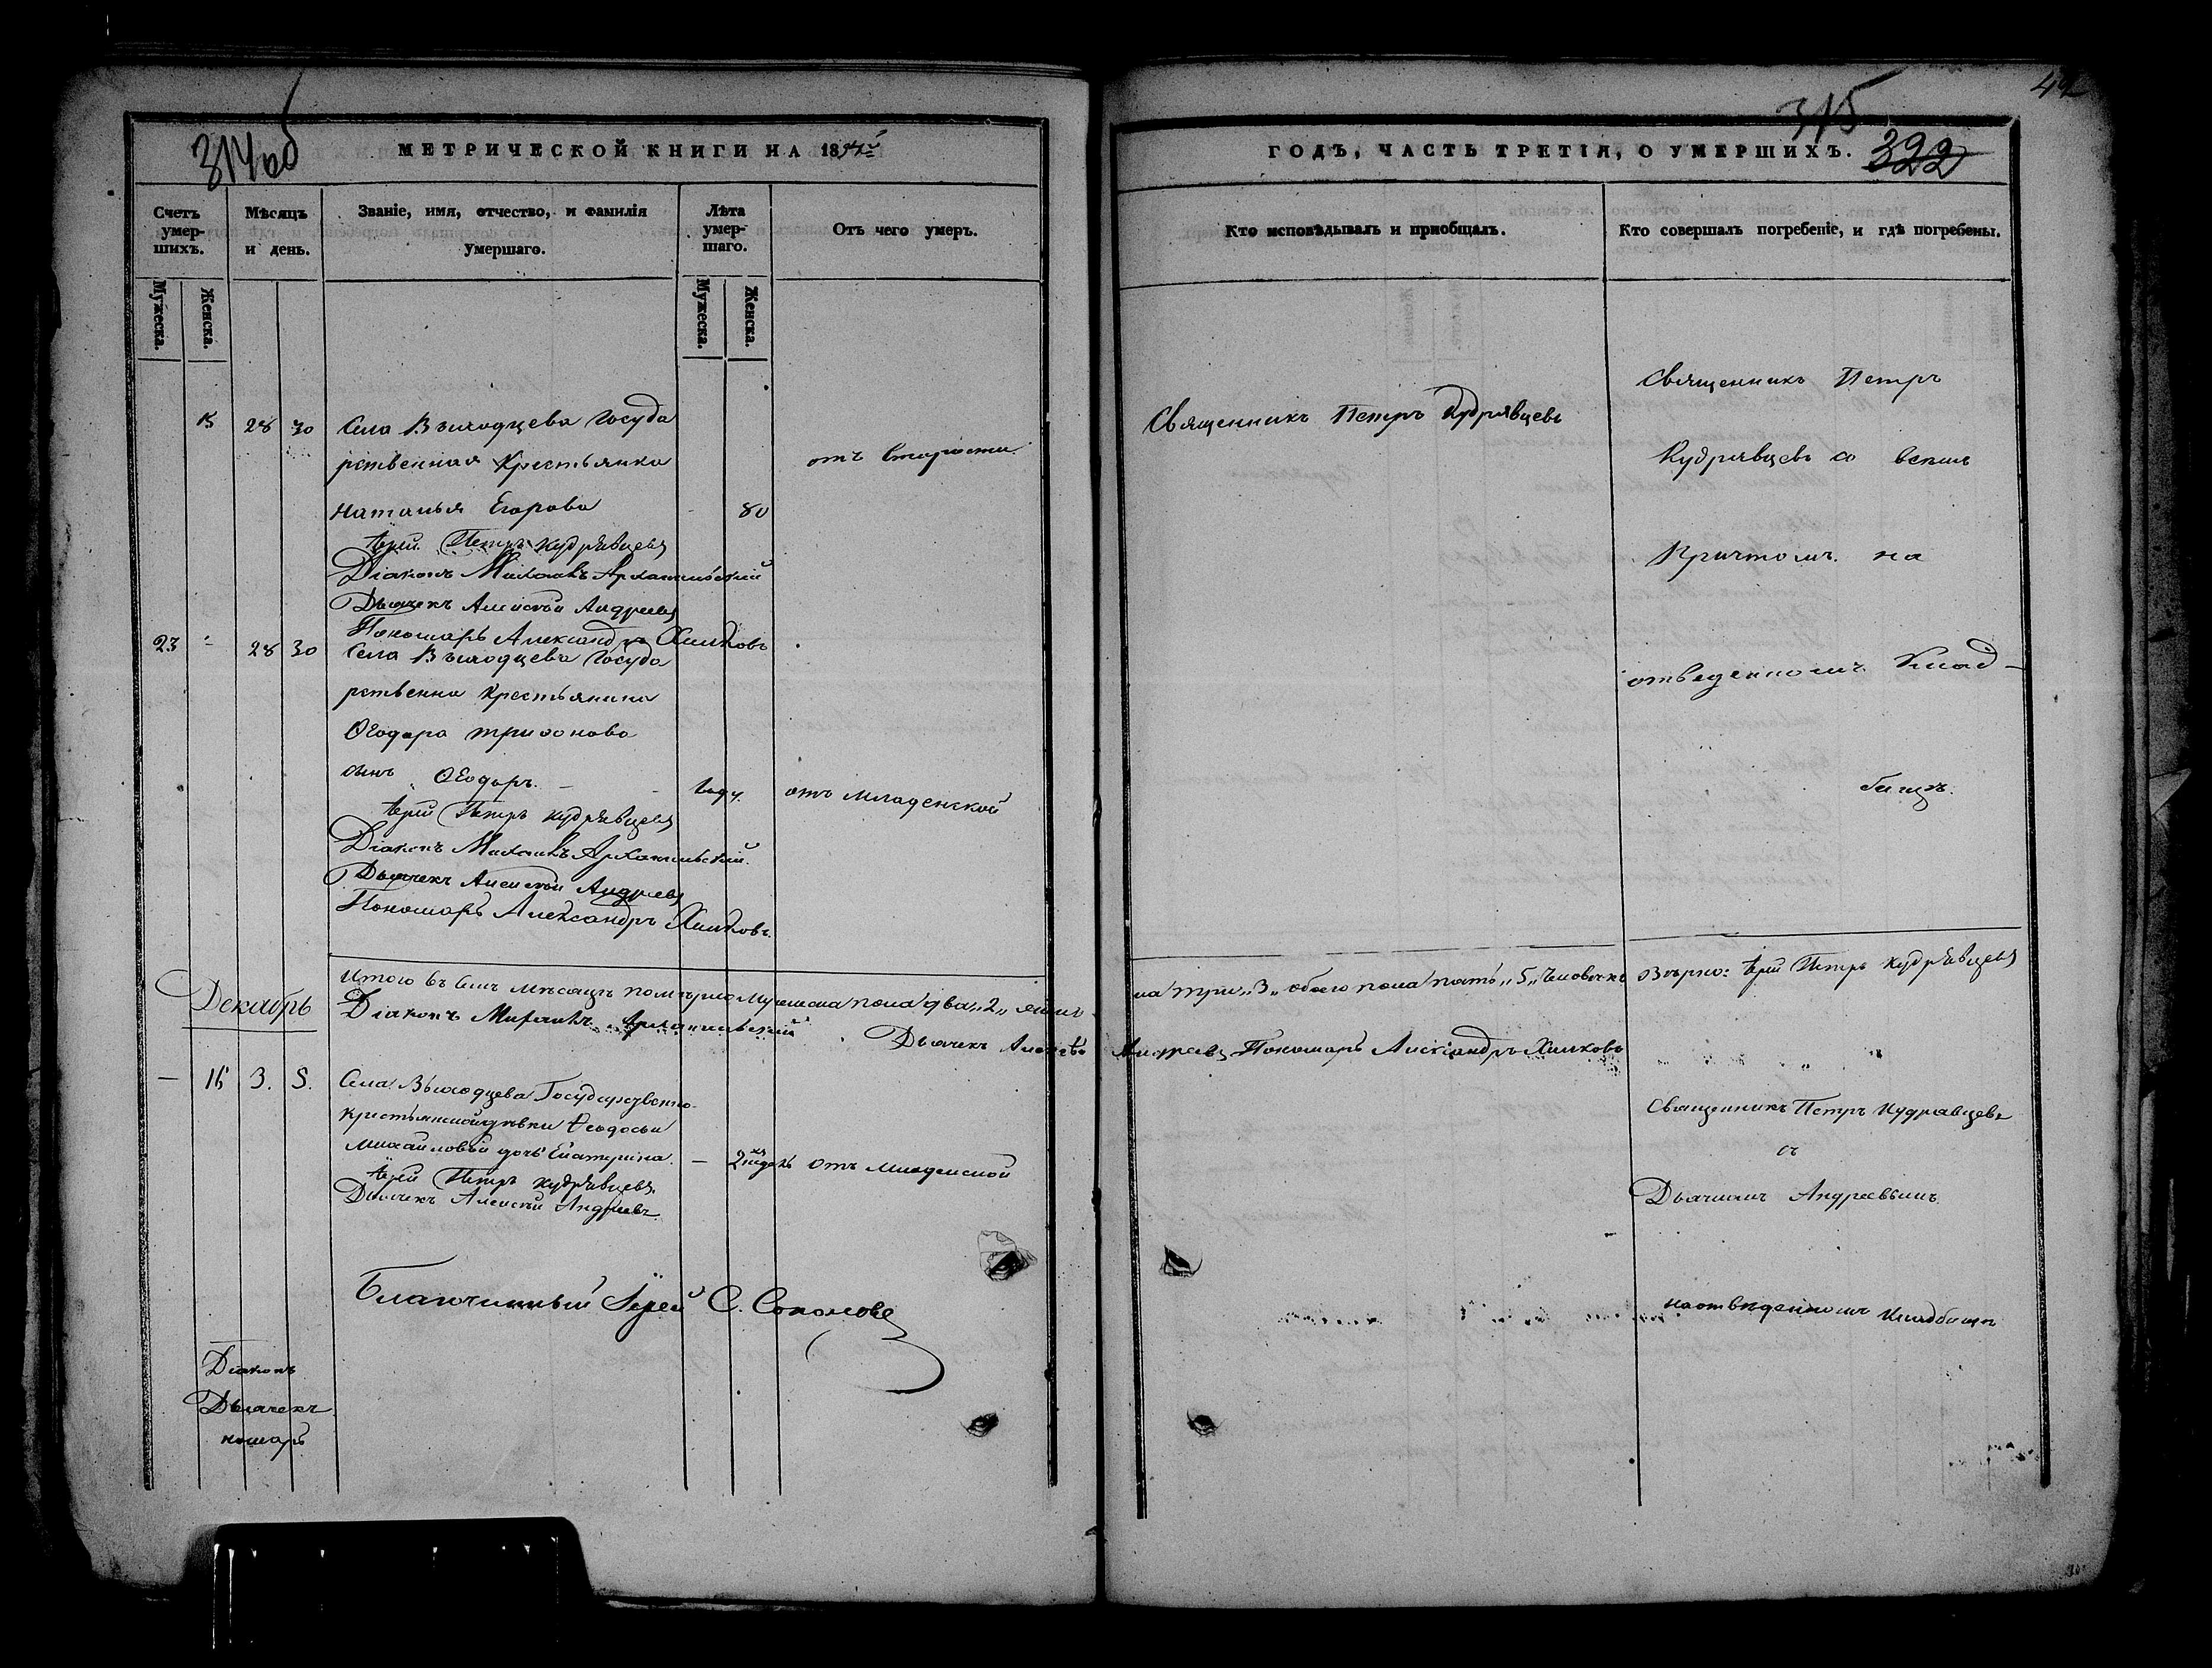 314 об
МЕТРИЧЕСКОЙ КНИГИ НА 18
Счетъ умер-шихъ.
Мѣсяцъ и день.
Званіе, имя, отчество, и фамилія умершаго.
Лѣта умер-шаго.
Отъ чего умеръ.
Мужеска.
Женска.
Мужеска.
Женска.
15 28 30 Села Выходцева Госуда
рственная Крестьянка
отъ Старости
Наталья Егорова
80
Іерей Петръ Кудрявцевъ
Діаконъ Михаилъ Архангельскій
Дьячекъ Алексѣй Андреевъ
Пономарь Александръ Хилковъ
23 28 30 Села Выходцева Госуда
рственна Крестьянина
Ѳеодора
сынъ Ѳеодоръ. году отъ младенской
Іерей Петръ Кудрявцевъ
Діаконъ Михаилъ Архангельскій.
Дьячекъ Алексѣй Андреевъ
Пономарь Александръ Хилковъ.
Декабрь
Итого въ семъ мѣсяцѣ померло Мужеска пола два „2„ женс
Діаконъ Михаилъ Архангельскій
Дьячекъ Алексѣй
— 16 3. 5. Села Выходцева Государственно
крестьянской дѣвки Ѳеодосьи
Михайловой дочь Екатерина. — 2 недѣль отъ младенской
Іерей Петръ Кудрявцевъ.
Дьячекъ Алексѣй Андреевъ
Благочинный Іерей С. Соколовъ
Діаконъ
Дьячекъ
номарь
42
315
322
ГОДЪ, ЧАСТЬ ТРЕТІЯ, О УМЕРШИХЪ.
Кто исповѣдывалъ и приобщалъ.
Кто совершалъ погребеніе, и гдѣ погребены.
Священникъ Петръ Кудрявцевъ
Священникъ Петръ
Кудрявцевъ со всемъ
Причтомъ на
отведенномъ Клад-
бищѣ.
ка три „3„ обоего пола пять „5„ Человѣкъ
Вѣрно: Іерей Петръ Кудрявцевъ
Андреевъ Пономарь Александръ Хилковъ
Священникъ Петръ Кудрявцевъ
съ
Дьячкомъ Андреевымъ
на отведенномъ Кладбищѣ